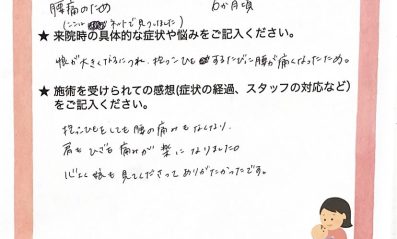 腰痛のため 6か月頃
(ここは ネットで見つけました)
★ 来院時の具体的な症状や悩みをご記入ください。
娘が大きくなるにつれ、抱っこひもするたびに腰が痛くなったため。
★ 施術を受けられての感想(症状の経過、スタッフの対応など)
をご記入ください。
抱っこひもをしても腰の痛みもなくなり、
肩もひざも痛みが楽になりました。
娘も見てくださってありがたかったです。